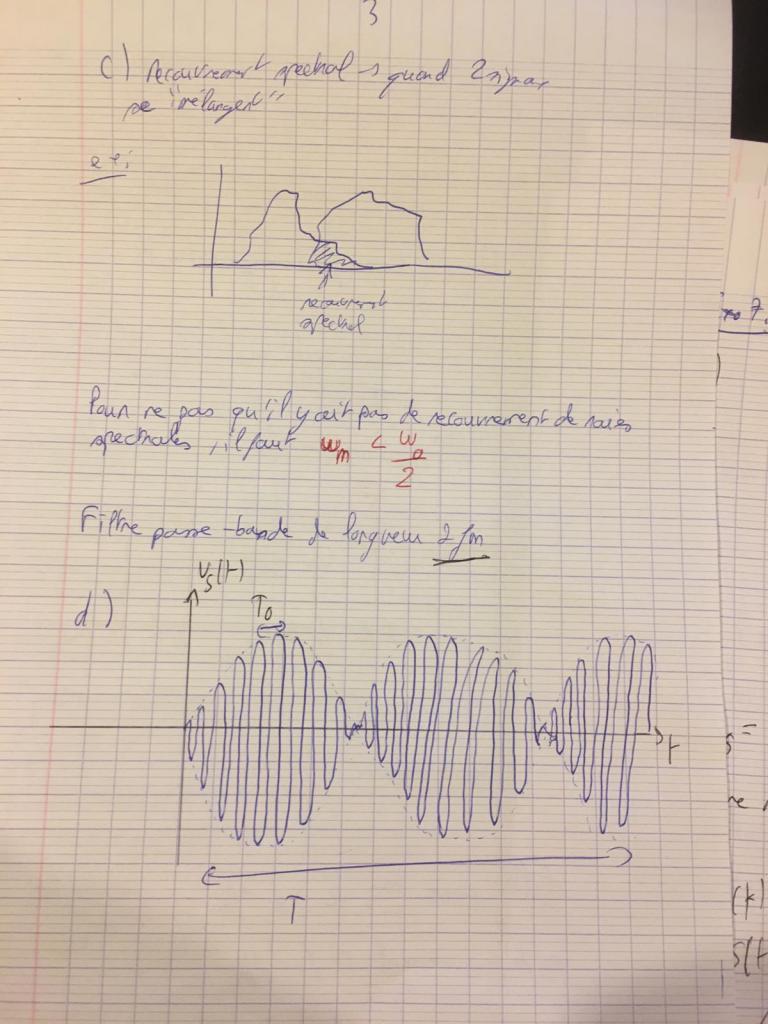 3
c) recouvrement spectral → quand 2
se "mélangent"
ex:
recouvrement
spectral
Pour ne pas qu'il y ait pas de recouvrement de raies
spectrales, il faut ωm < ω0/2
Filtre passe-bande de longueur 2fm
d)
vs(t)
T0
t
T
7.
s=
(t)
s(t